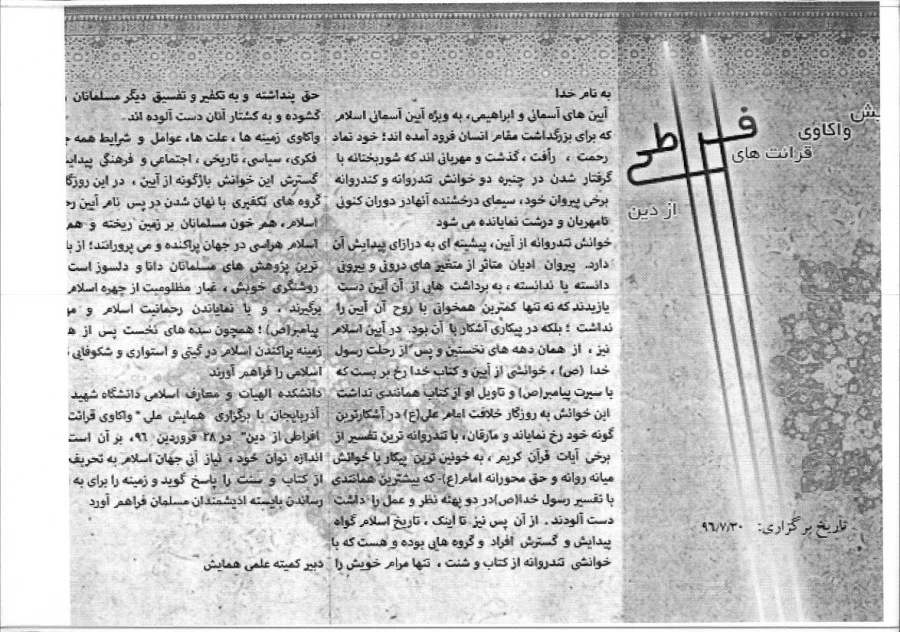 واکاوی
قرائت های
افراطی
از دین
تاریخ برگزاری: ۹۶/۷/۳۰
به نام خدا
آیین های آسمانی و ابراهیمی، به ویژه آیین آسمانی اسلام
که برای بزرگداشت مقام انسان فرود آمده اند؛ خود نماد
رحمت ، رأفت ، گذشت و مهربانی اند که شوربختانه با
گرفتار شدن در چنبره دو خوانش تندروانه و کندروانه
برخی پیروان خود، سیمای درخشنده آنهادر دوران کنونی
نامهربان و درشت نمایانده می شود
خوانش تندروانه از آیین، پیشینه ای به درازای پیدایش آن
دارد. پیروان ادیان متاثر از متغیر های درونی و بیرونی
دانسته یا ندانسته ، به برداشت هایی از آن آیین دست
یازیدند که نه تنها کمترین همخوانی با روح آن آیین را
نداشت ؛ بلکه در پیکاری آشکار با آن بود. در آیین اسلام
نیز ، از همان دهه های نخستین و پس از رحلت رسول
خدا (ص) ، خوانشی از آیین و کتاب خدا رخ بر بست که
با سیرت پیامبر(ص) و تاویل او از کتاب همانندی نداشت
این خوانش به روزگار خلافت امام علی(ع) در آشکارترین
گونه خود رخ نمایاند و مارقان، با تندروانه ترین تفسیر از
برخی آیات قرآن کریم ، به خونین ترین پیکار با خوانش
میانه روانه و حق محورانه امام(ع)- که بیشترین همانندی
با تفسیر رسول خدا(ص)در دو پهنه نظر و عمل را داشت
دست آلودند . از آن پس نیز تا اینک ، تاریخ اسلام گواه
پیدایش و گسترش افراد و گروه هایی بوده و هست که با
خوانشی تندروانه از کتاب و سنت ، تنها مرام خویش را
حق پنداشته و به تکفیر و تفسیق دیگر مسلمانان
گشوده و به کشتار آنان دست آلوده اند.
واکاوی زمینه ها ، علت ها، عوامل و شرایط همه
فکری، سیاسی، تاریخی ، اجتماعی و فرهنگی
گسترش این خوانش باژگونه از آیین ، در این
گروه های تکفیری با نهان شدن در پس نام آیین
اسلام، هم خون مسلمانان بر زمین ریخته و هم
اسلام هراسی در جهان پراکنده و می پرورانند؛ از
ترین پژوهش های مسلمانان دانا و دلسوز است
روشنگری خویش ، غبار مظلومیت از چهره اسلام
برگیرند ، و با نمایاندن رحمانیت اسلام و
پیامبر(ص) ؛ همچون سده های نخست پس از
زمینه پراکندن اسلام در گیتی و استواری و شکوفایی
اسلامی را فراهم آورند
دانشکده الهیات و معارف اسلامی دانشگاه شهید
آذربایجان با برگزاری همایش ملی " واکاوی قرائت
افراطی از دین" در ۲۸ فروردین ۹۶، بر آن است
اندازه توان خود ، نیاز آنی جهان اسلام به تحریف
از کتاب و سنت را پاسخ گوید و زمینه را برای به
رساندن بایسته اندیشمندان مسلمان فراهم آورد
دبیر کمیته علمی همایش